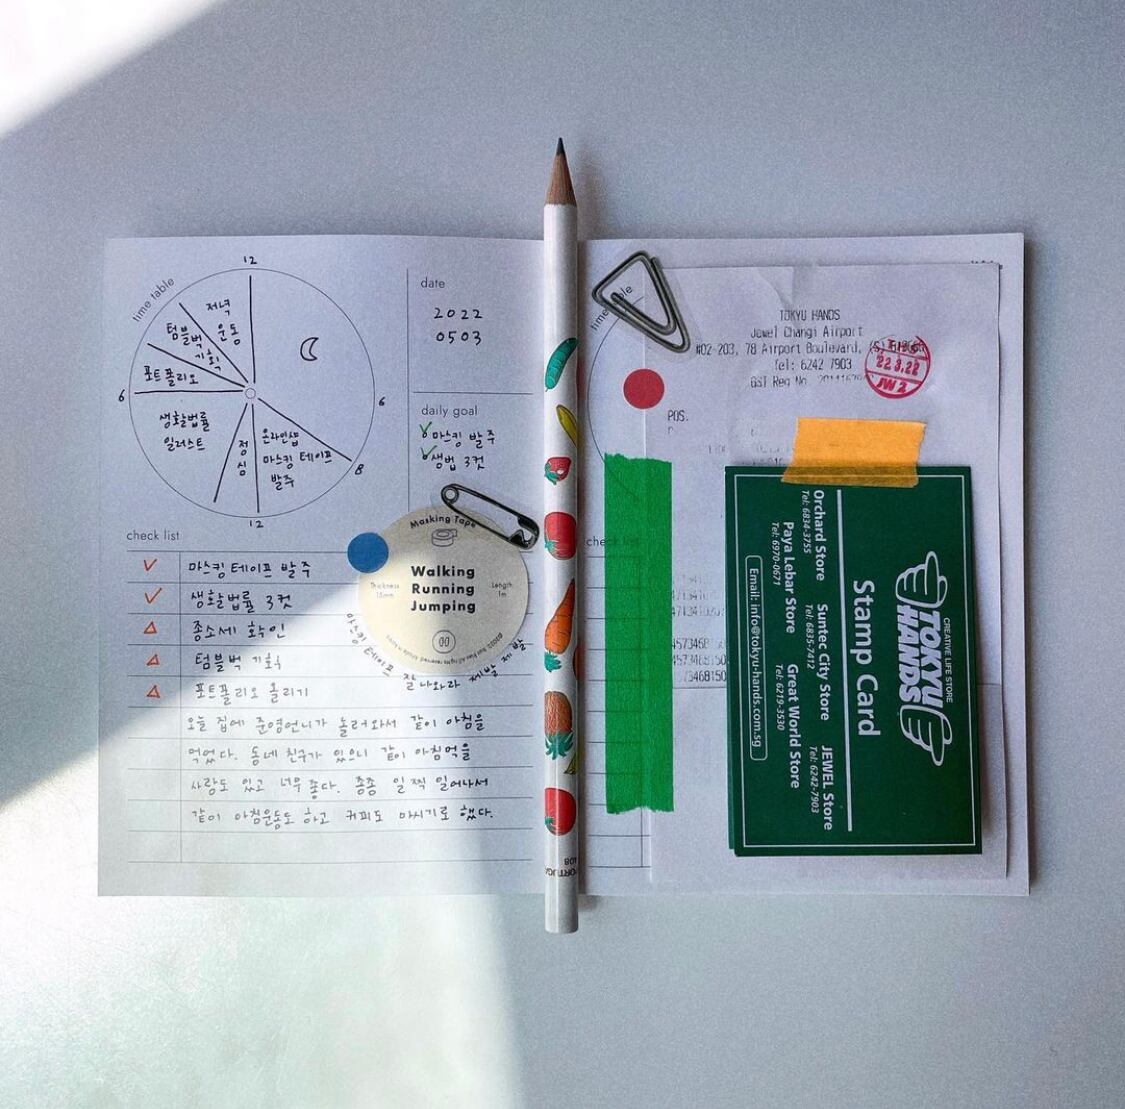 time table
12
6
6
8
12
저녁
운동
텀블벅
기획
포트폴리오
생활법률
일러스트
점
심
온라인샵
마스킹 테이프
발주
date
2022
0503
daily goal
마스킹 발주
생법 3컷
check list
마스킹 테이프 발주
생활법률 3컷
종소세 확인
텀블벅 기획
포트폴리오 올리기
오늘 집에 준영언니가 놀러와서 같이 아침을
먹었다. 동네 친구가 있으니 같이 아침먹을
사람도 있고 너무 좋다. 종종 일찍 일어나서
같이 아침운동도 하고 커피도 마시기로 했다.
Masking Tape
Walking
Running
Jumping
Thickness
15mm
Length
1m
마스킹 테이프 잘 나와라 제발 제발
PORTUGAL
408
time table
check list
TOKYU HANDS
Jewel Changi Airport
#02-203, 78 Airport Boulevard,
Tel: 6242 7903
GST Reg No.
POS.
22.3.22
JW 2
CREATIVE LIFE STORE
TOKYU
HANDS
Stamp Card
Orchard Store
Tel: 6834-3755
Suntec City Store
Tel: 6835-7412
JEWEL Store
Tel: 6242-7903
Paya Lebar Store
Tel: 6970-0671
Great World Store
Tel: 6219-3530
Email: info@tokyu-hands.com.sg